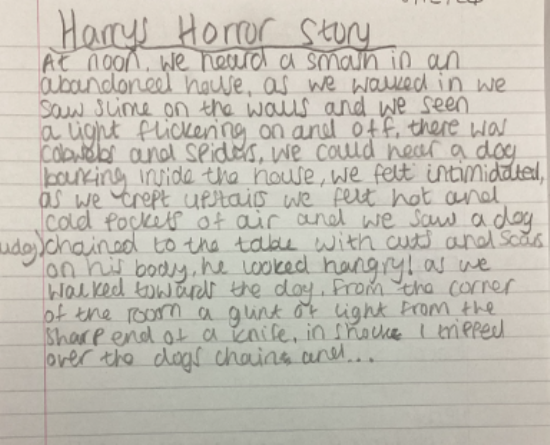 Harrys Horror Story
At noon, we heard a smash in an
abandoned house, as we walked in we
saw slime on the walls and we seen
a light flickering on and off, there was
cobwebs and spiders, we could hear a dog
barking inside the house, we felt intimidated,
as we crept upstairs we felt hot and
cold pockets of air and we saw a dog
chained to the table with cuts and scars
on his body, he looked hangry! as we
walked towards the dog, from the corner
of the room a glint of light from the
sharp end of a knife, in shock I tripped
over the dogs chains and...